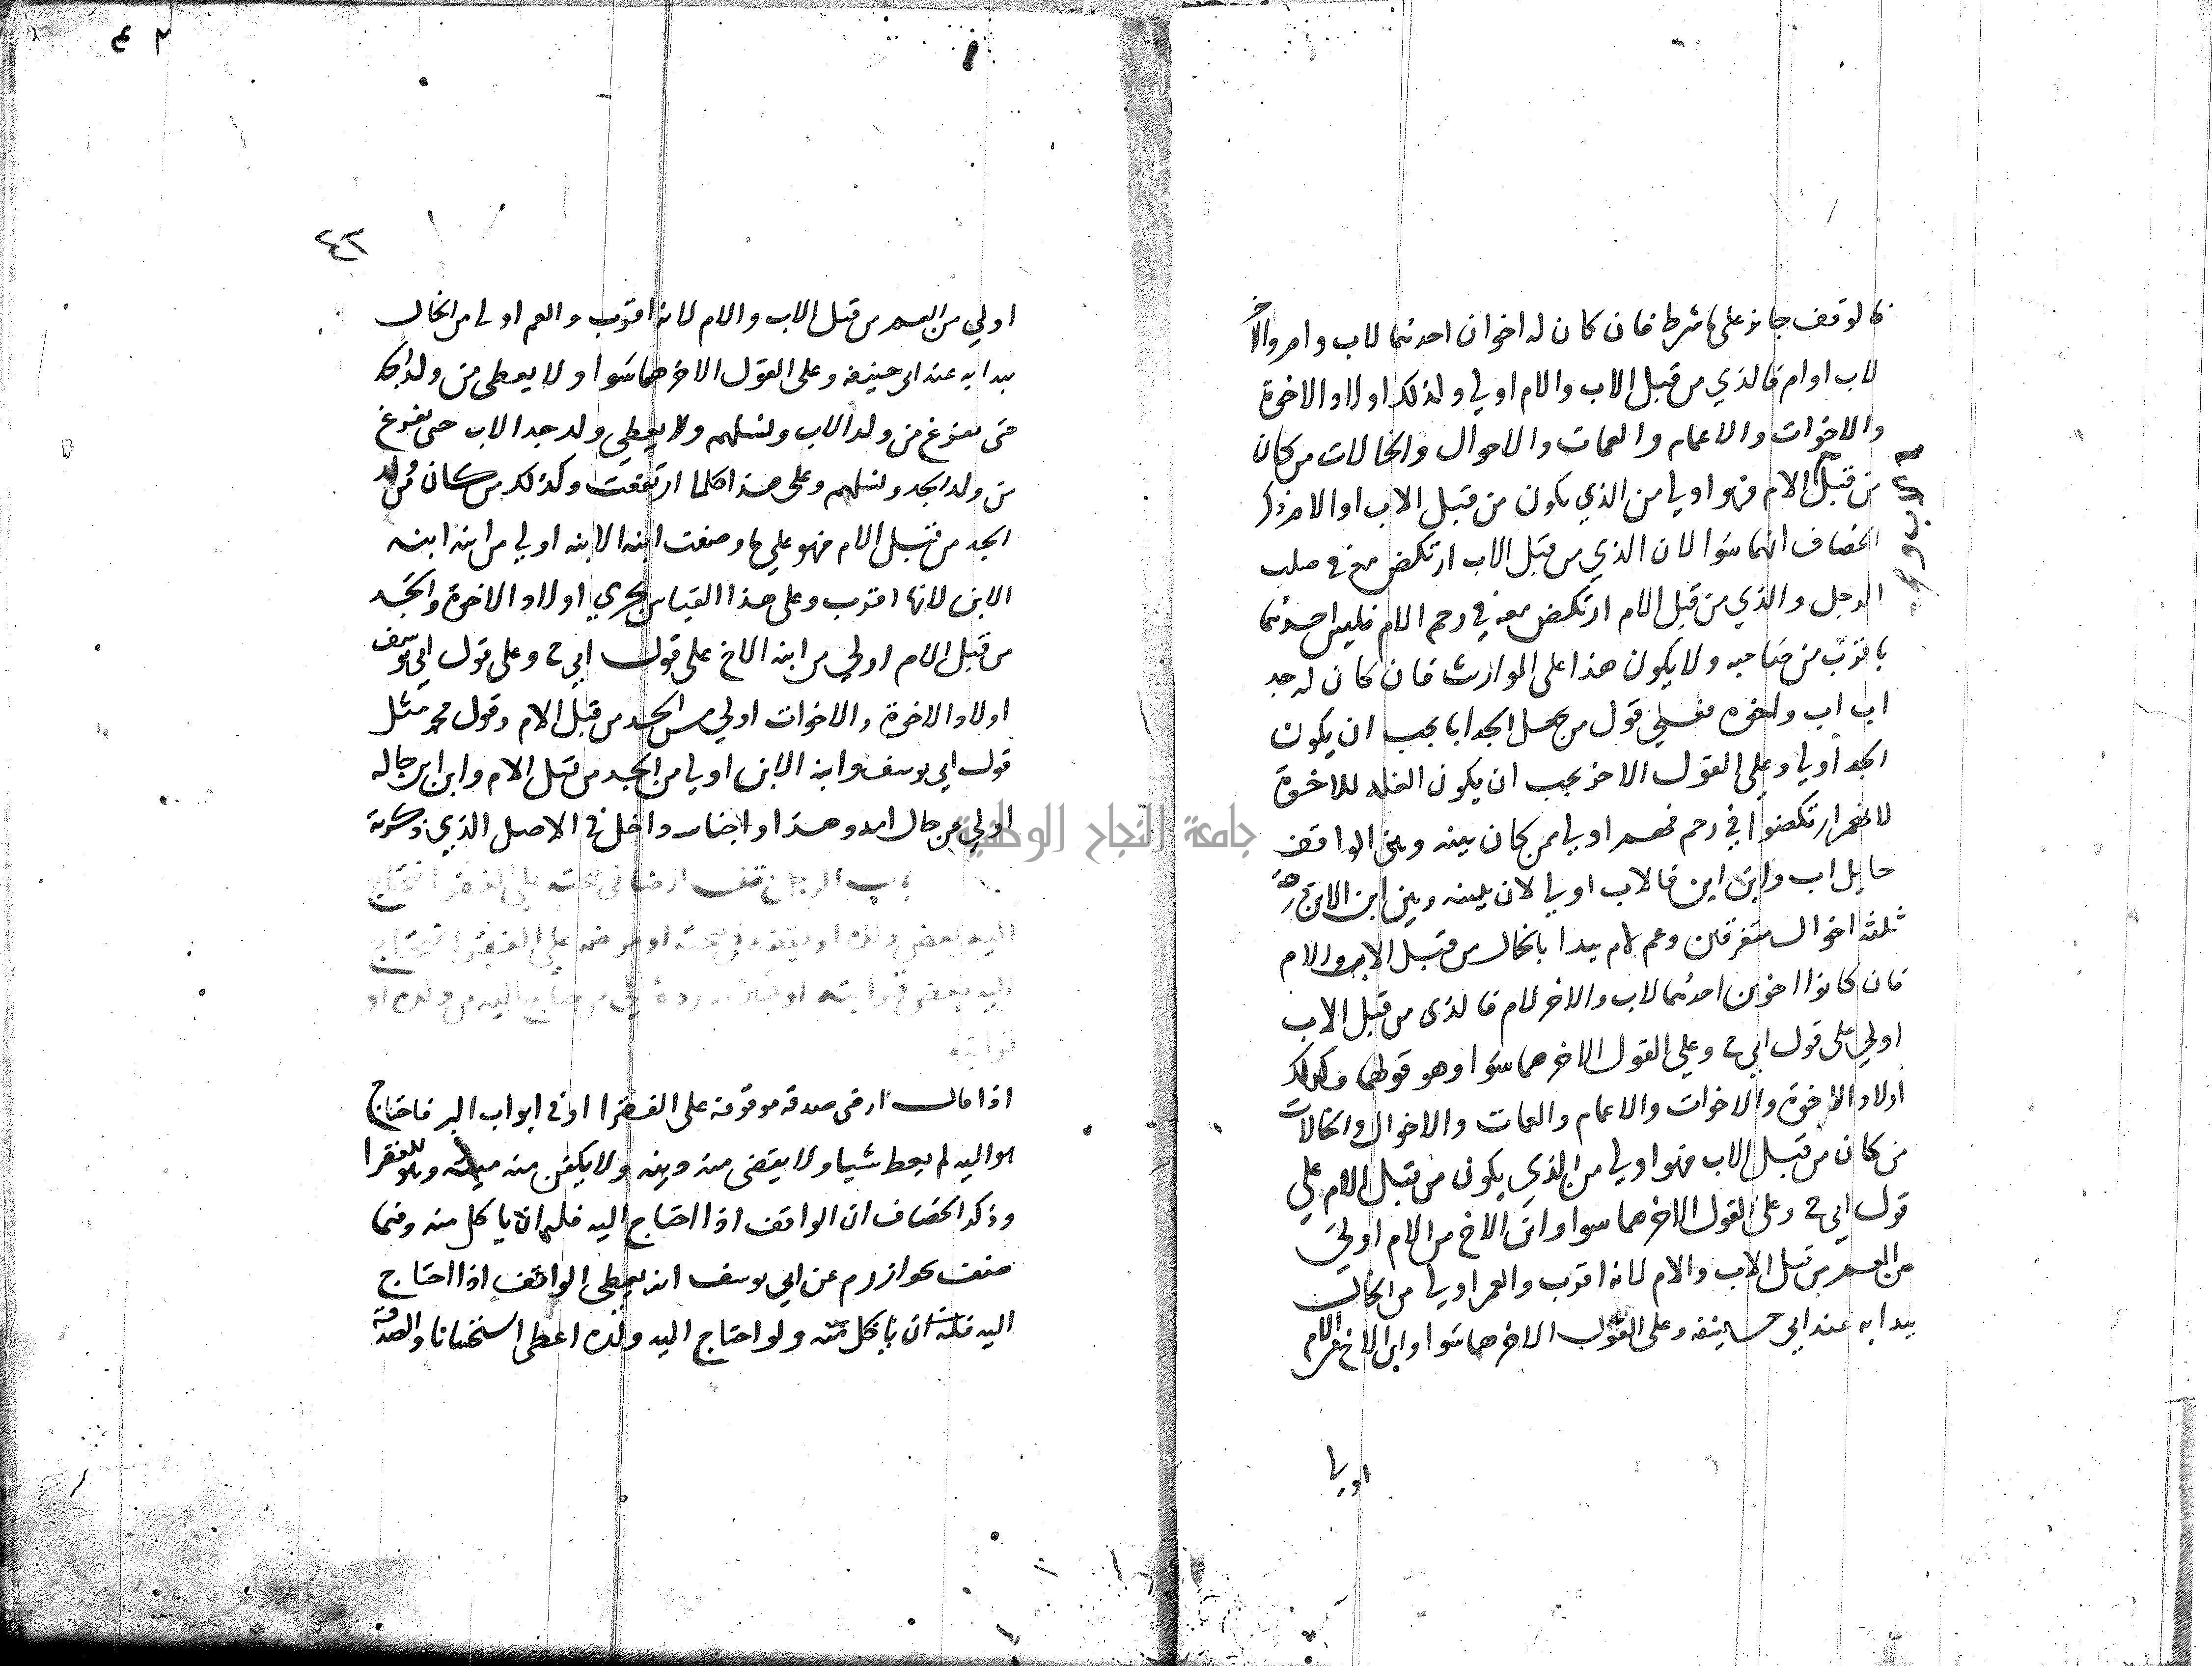 فالوقف جائز على ما شرط فان كان له اخوان احدهما لاب وام والاخر
لاب او ام فالذي من قبل الاب والام اولي وكذلك اولاد الاخوة
والاخوات والاعمام والعمات والاخوال والخالات من كان
من قبل الام فهو اولي من الذي يكون من قبل الاب او الام ذكر
الخصاف انهما سوا لان الذي من قبل الاب ارتكض معه في صلب
الرجل والذي من قبل الام ارتكض معه في رحم الام فليس احدهما
باقرب من صاحبه ولا يكون هذا على الموارث فان كان له جد
اب اب واخوه فعلي قول من جعل الجد ابا يجب ان يكون
الجد اولي وعلي القول الاخر يجب ان يكون الغله للاخوة
لانهم ارتكضوا في رحم فهم اولي ممن كان بينه وبين الواقف
حايل اب وابن ابن فالاب اولي لان بينه وبين ابن الابن
ثلثه اخوال متفرقين وعم لام يبدا بالخال من قبل الاب والام
فان كانوا اخوين احدهما لاب والاخر لام فالذى من قبل الاب
اولي على قول ابي ح وعلي القول الاخر هما سوا وهو قولهما وكذلك
اولاد الاخوة والاخوات والاعمام والعمات والاخوال والخالات
من كان من قبل الاب فهو اولي من الذي يكون من قبل الام علي
قول ابي ح وعلى القول الاخر هما سوا وابن الاخ من الام اولي
من العم من قبل الاب والام لانه اقرب والعم اولي من الخال
يبدا به عند ابي حنيفه وعلى القول الاخر هما سوا وابن الاخ من الام
اولي
٤٢
اولي من العم من قبل الاب والام لانه اقرب والعم اولى من الخال
يبدا به عند ابي حنيفه وعلى القول الاخر هما سوا ولا يعطى من ولد الجد
حتى يفرغ من ولد الاب ونسلهم ولا يعطي ولد جد الاب حتى يفرغ
من ولد الجد ونسلهم وعلى هذا كلما ارتفعت وكذلك من كان من ولد
الجد من قبل الام فهو علي ما وصفت ابنه الابنه اولي من ابنه ابنه
الابن لانها اقرب وعلى هذا القياس يجري اولاد الاخوة والجد
من قبل الام اولي من ابنه الاخ على قول ابي ح وعلى قول ابي يوسف
اولاد الاخوة والاخوات اولي من الجد من قبل الام وقول محمد مثل
قول ابي يوسف وابنه الابن اولي من الجد من قبل الام وابن ابن خاله
اولي من خال امه وهذا واجناسه داخل في الاصل الذي ذكرته
باب الرجل يقف ارضا في صحته علي الفقرا فيحتاج
اليه بعض ولده او يقفه في صحته او مرضه علي الفقرا فيحتاج
اليه بعض قرابته
قرابته
اذا قال ارضى صدقه موقوفه على الفقرا او في ابواب البر فاحتاج
هو اليه لم يعط شيا ولا يقضى منه دينه ولا يكفن منه ميته وهو للفقرا
وذكر الخصاف ان الواقف اذا احتاج اليه فله ان ياكل منه وفيما
صنف بخوارزم عن ابي يوسف انه يعطي الواقف اذا احتاج
اليه فله ان ياكل منه ولو احتاج اليه ولده اعطى استحسانا والصدقه
جامعة النجاح الوطنية